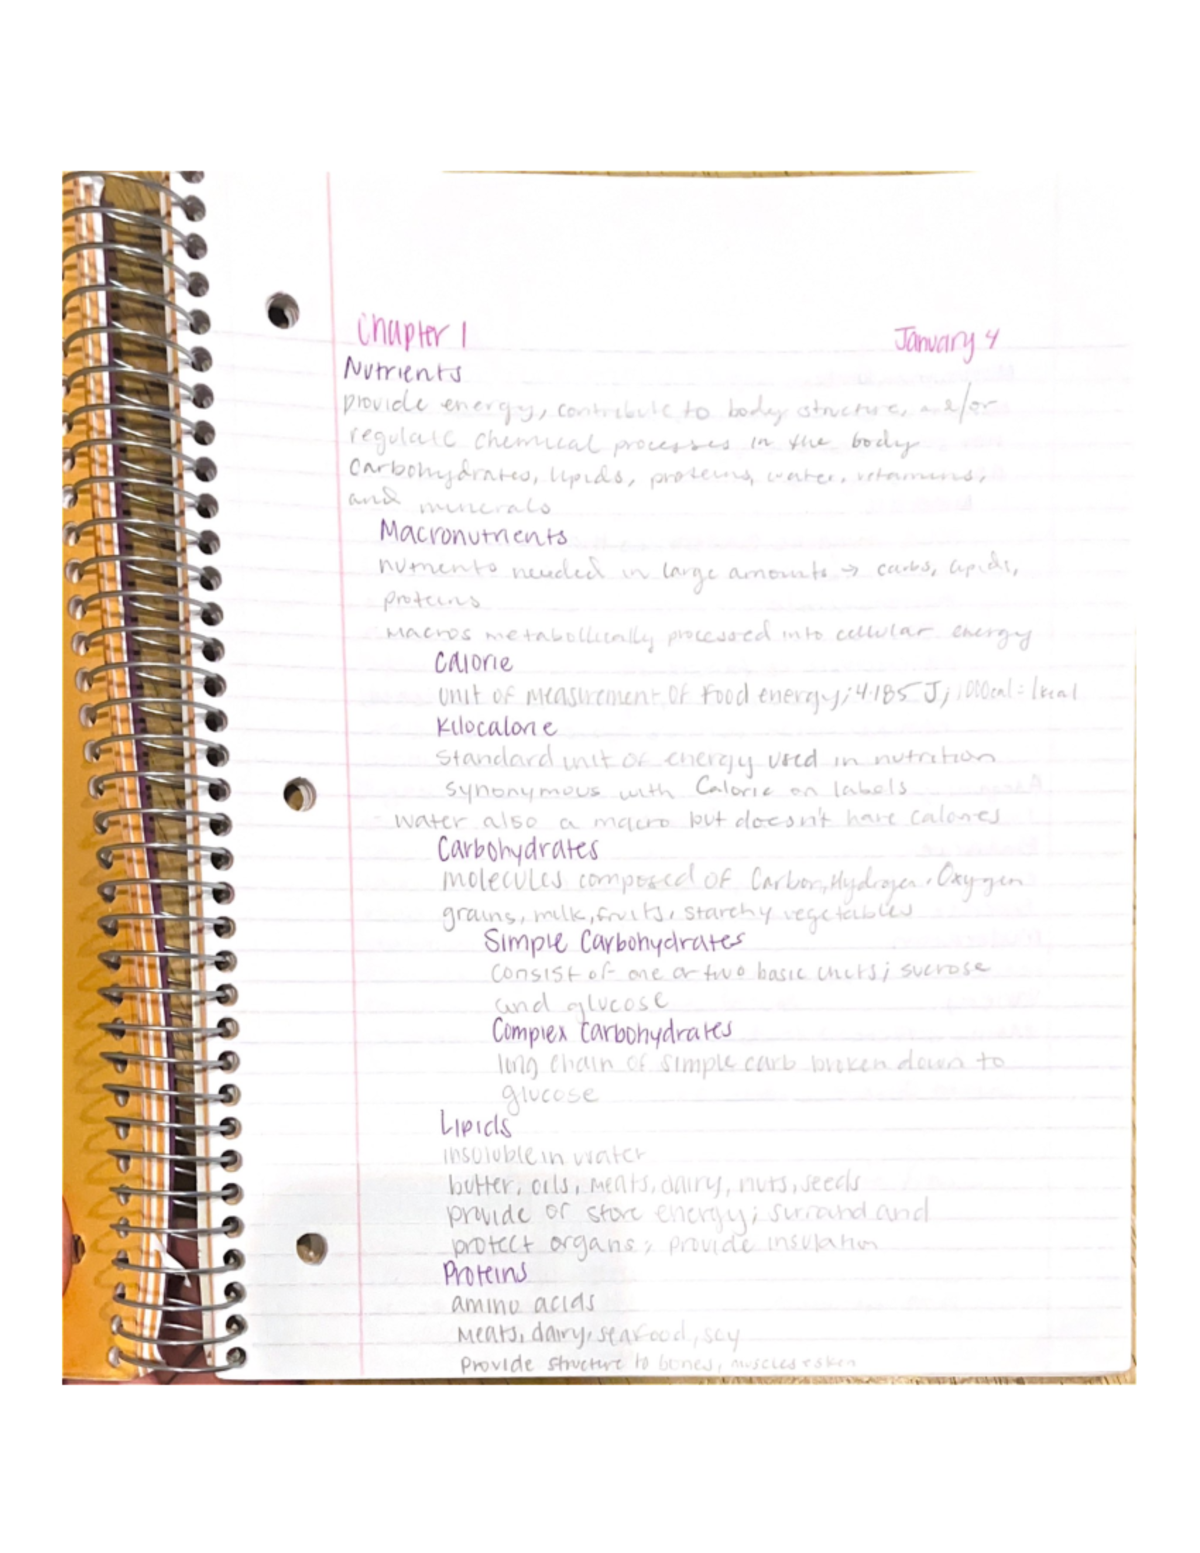 Chapter 1 January 4
Nutrients
provide energy, contribute to body structure, and/or
regulate chemical processes in the body
Carbohydrates, lipids, proteins, water, vitamins,
and minerals
Macronutrients
nutrients needed in large amounts → carbs, lipids,
proteins
Macros metabollically processed into cellular energy
Calorie
unit of measurement of food energy; 4.185 J; 1000cal = 1kcal
Kilocalorie
Standard unit of energy used in nutrition
synonymous with Calorie on labels
water also a macro but doesn't have calories
Carbohydrates
molecules composed of Carbon, Hydrogen, Oxygen
grains, milk, fruits, starchy vegetables
Simple Carbohydrates
Consist of one or two basic units; sucrose
and glucose
Complex Carbohydrates
long chain of simple carb broken down to
glucose
Lipids
insoluble in water
butter, oils, meats, dairy, nuts, seeds
provide or store energy; surround and
protect organs; provide insulation
Proteins
amino acids
Meats, dairy, seafood, soy
Provide structure to bones, muscles + skin